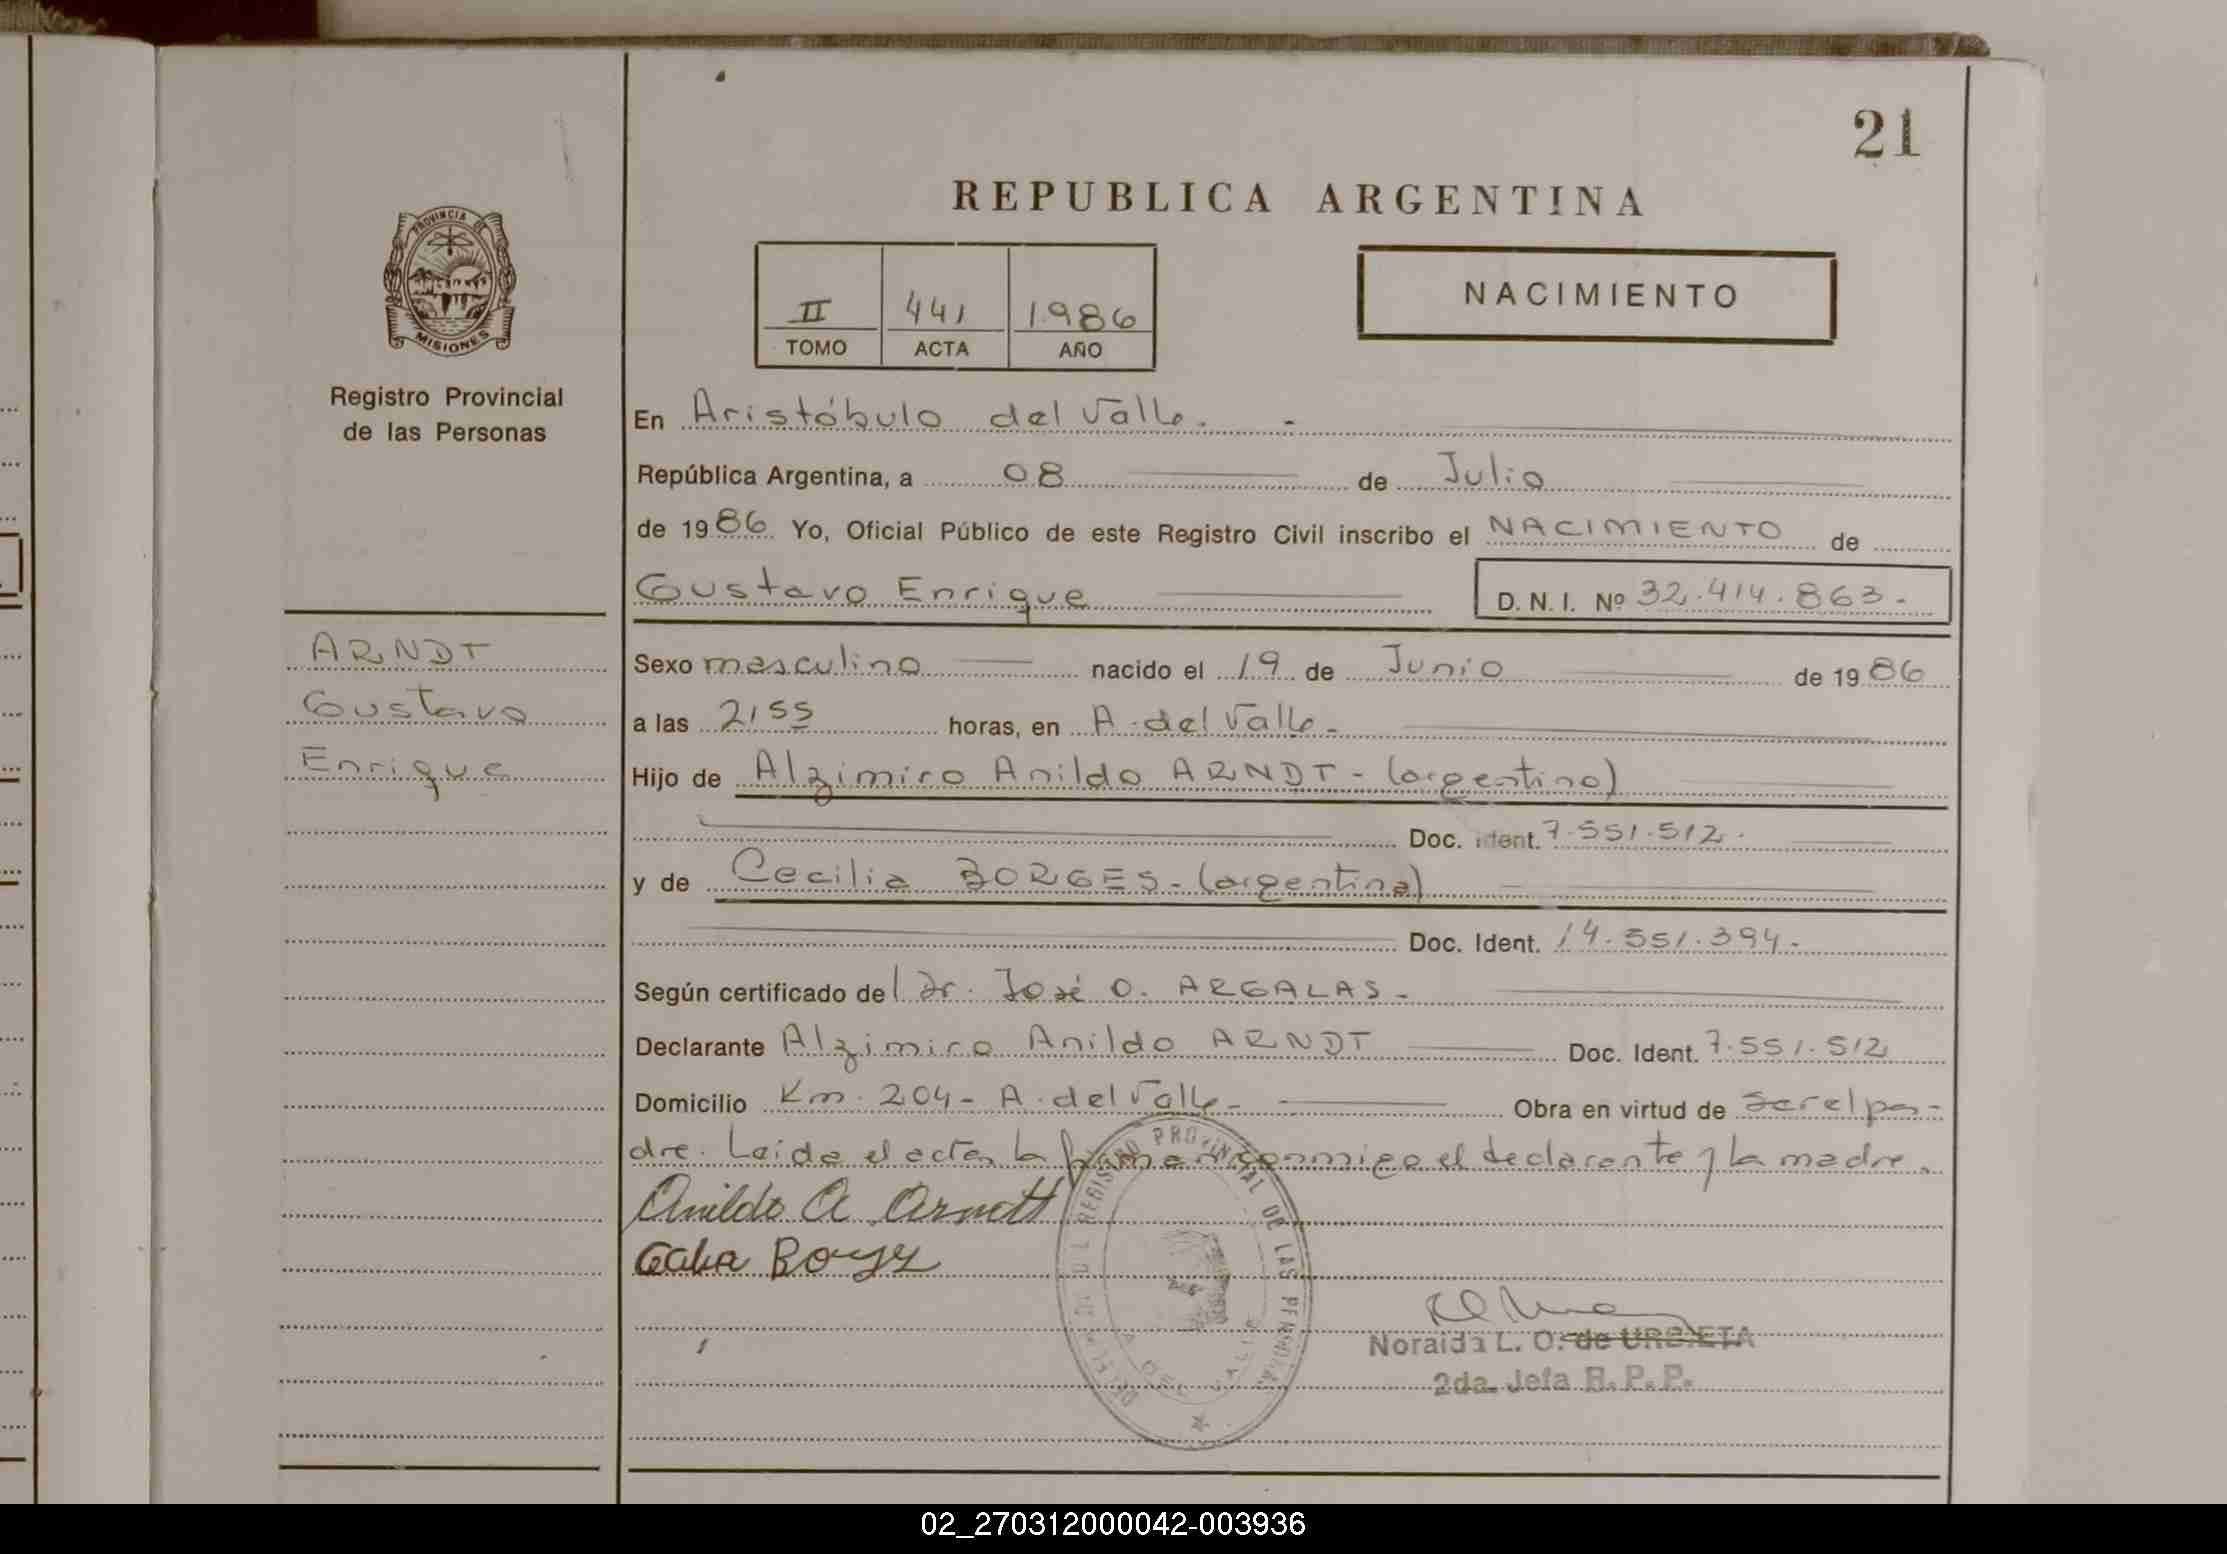 21
REPUBLICA ARGENTINA
PROVINCIA DE
MISIONES
II 441 1986
TOMO ACTA AÑO
NACIMIENTO
Registro Provincial
de las Personas
En Aristóbulo del Valle. -
República Argentina, a 08 de Julio
de 1986 Yo, Oficial Público de este Registro Civil inscribo el NACIMIENTO de
Gustavo Enrique D. N. I. Nº 32.414.863.-
ARNDT
Gustavo
Enrique
Sexo masculino nacido el 19 de Junio de 1986
a las 2155 horas, en A. del Valle -
Hijo de Alzimiro Anildo ARNDT - (argentino)
Doc. Ident. 7.551.512.
y de Cecilia BORGES - (argentina)
Doc. Ident. 14.551.394.-
Según certificado del Dr. José O. ARGALAS -
Declarante Alzimiro Anildo ARNDT Doc. Ident. 7.551.512
Domicilio Km. 204 - A. del Valle - Obra en virtud de ser el pa-
dre. Leída el acta, la firman conmigo el declarante y la madre.
Anildo A
Noraida L. O. de URBIETA
2da. Jefa R. P. P.
REGISTRO PROVINCIAL DE LAS PERSONAS
A. DEL VALLE
02_270312000042-003936